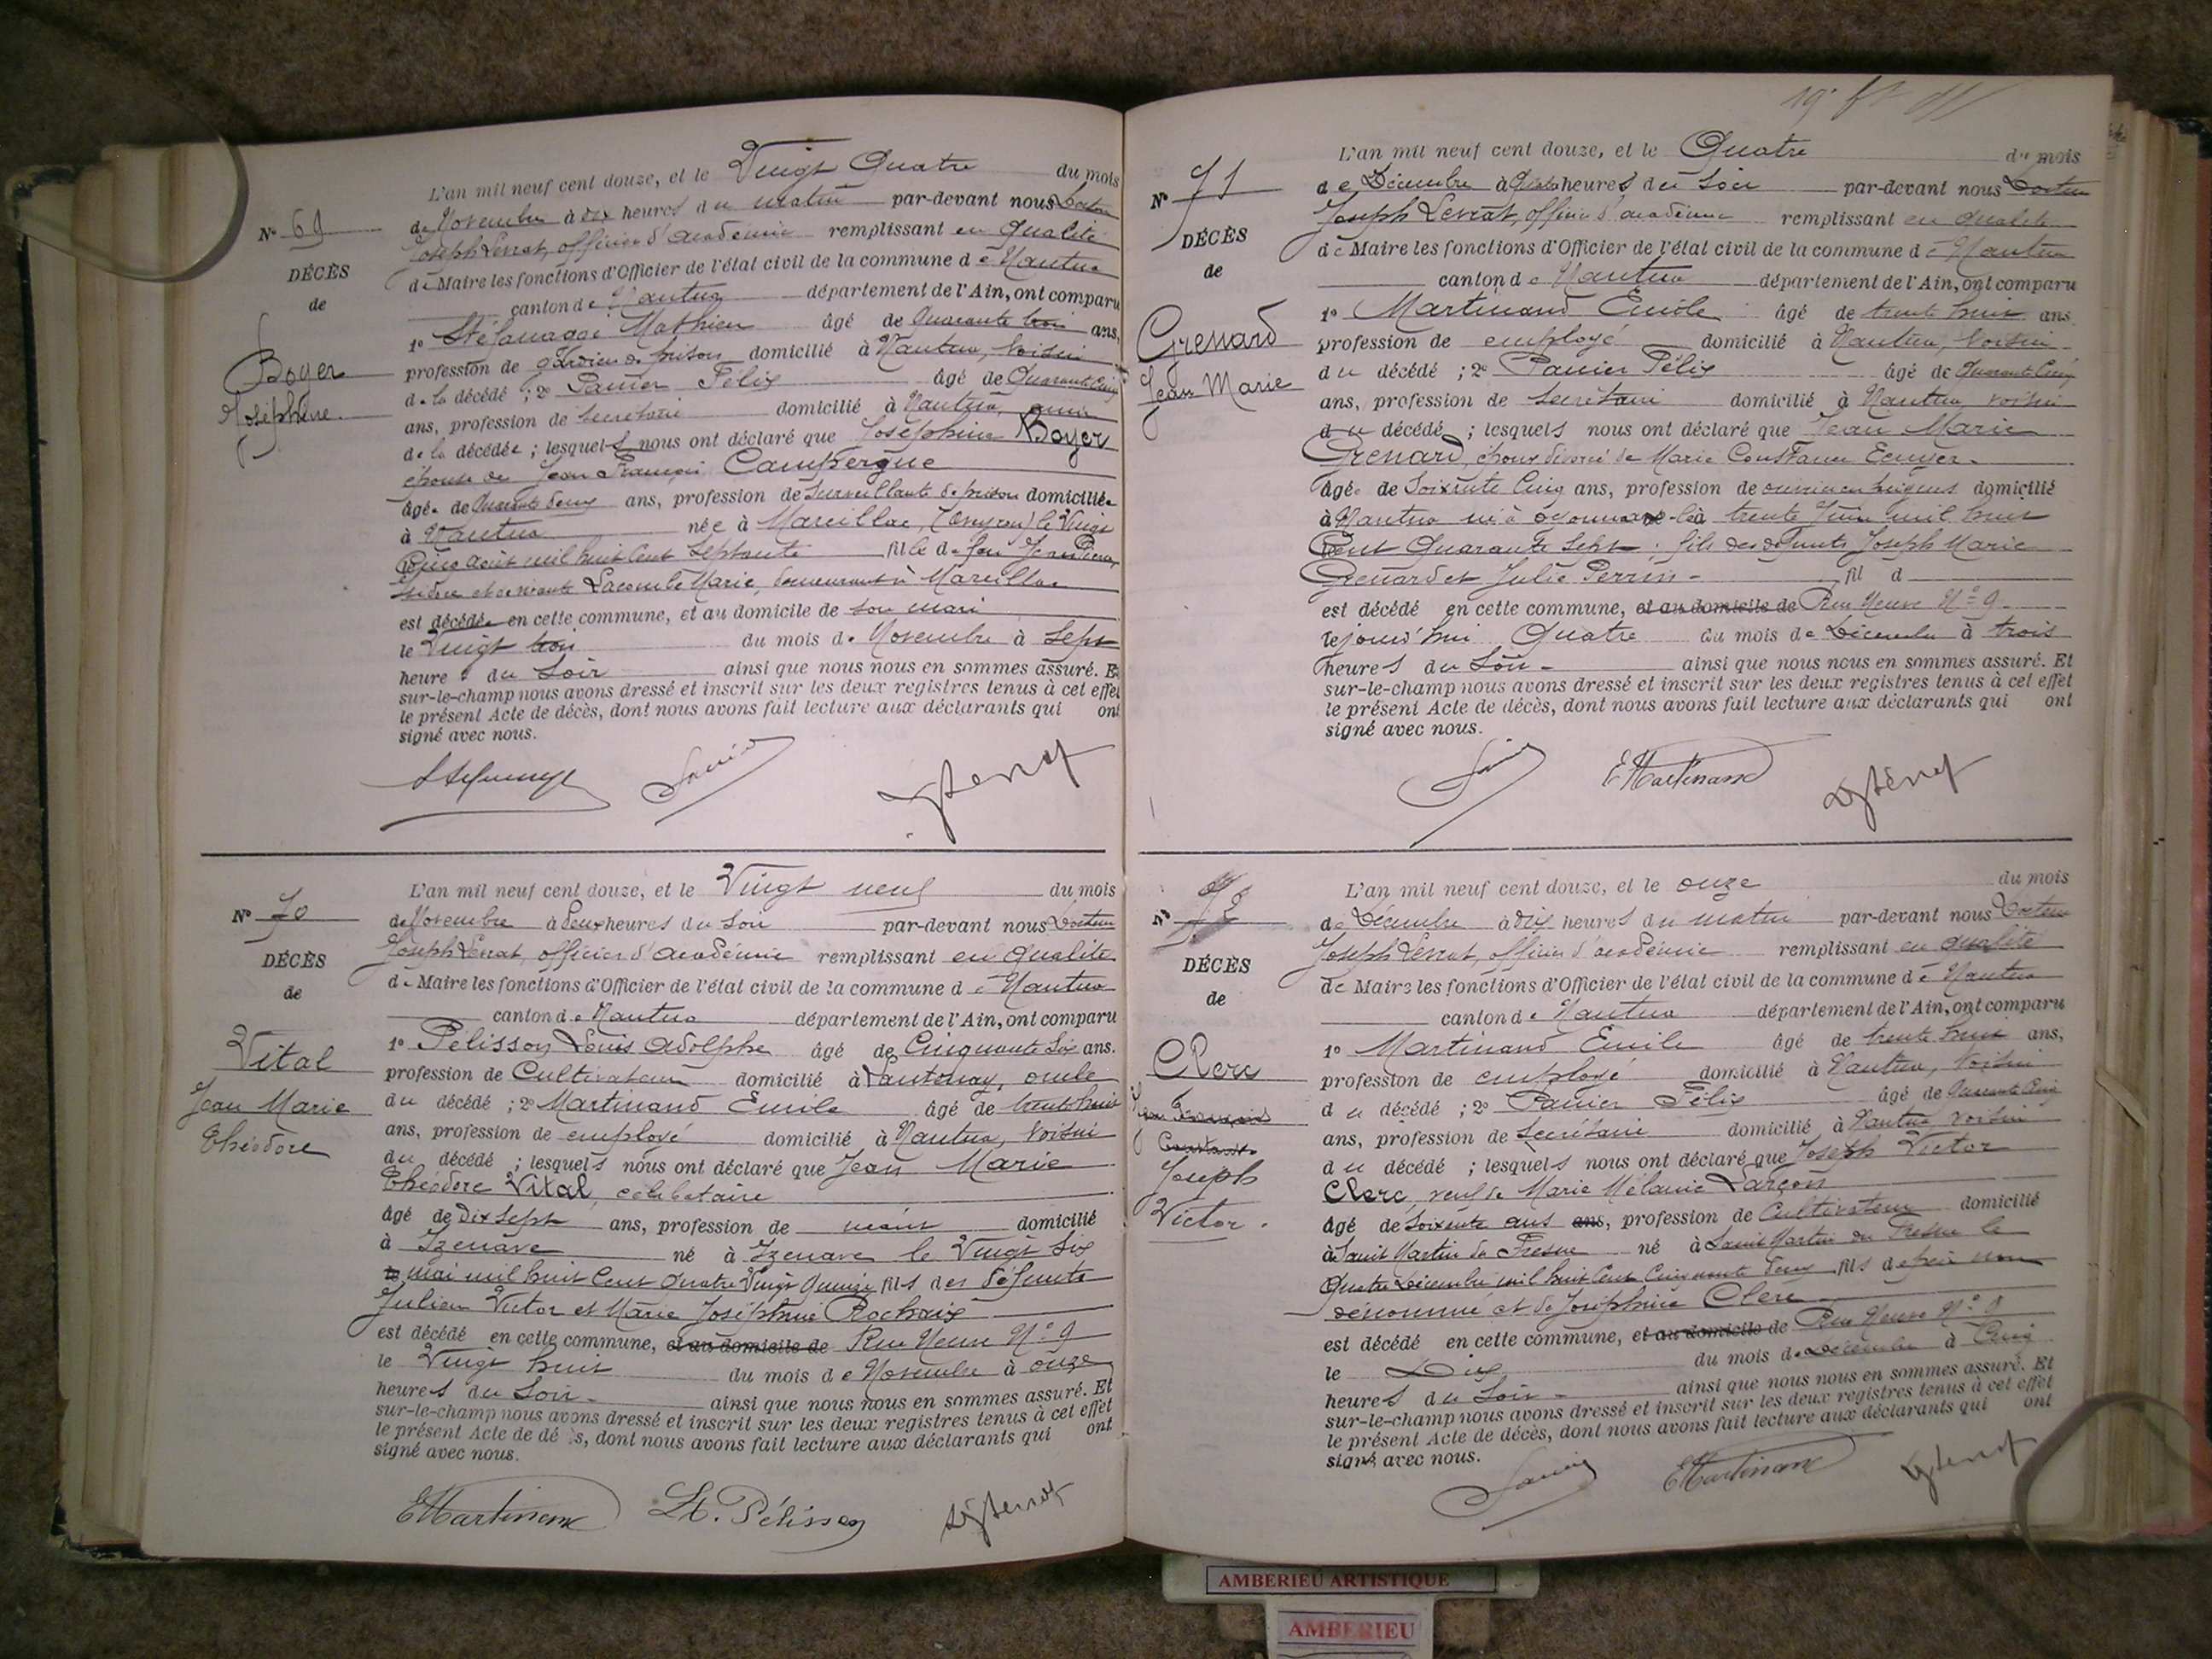 L'an mil neuf cent douze, et le Vingt Quatre du mois
de Novembre à dix heures du matin par-devant nous Docteur
Joseph Levrat, officier d'académie remplissant en qualité
de Maire les fonctions d'Officier de l'état civil de la commune de Nantua
canton de Nantua département de l'Ain, ont comparu
1º Mathieu âgé de Quarante trois ans,
profession de gardien de prison domicilié à Nantua, voisin
de la décédé ; 2º Panier Félix âgé de Quarante Cinq
ans, profession de secrétaire domicilié à Nantua,
de la décédée ; lesquels nous ont déclaré que Joséphine Boyer
épouse de Jean François Campergue
âgée de Quarante deux ans, profession de Surveillante de prison domiciliée
à Nantua née à Marcillac, (Aveyron) le Vingt
Cinq août mil huit Cent Septante fille de feu Jean Pierre,
et de vivante Lacombe Marie, demeurant à Marcillac
est décédée en cette commune, et au domicile de son mari
le Vingt trois du mois de Novembre à Sept
heure du Soir ainsi que nous nous en sommes assuré. Et
sur-le-champ nous avons dressé et inscrit sur les deux registres tenus à cet effet
le présent Acte de décès, dont nous avons fait lecture aux déclarants qui ont
signé avec nous.
Nº 69
DÉCÈS
de
Boyer
Joséphine
L'an mil neuf cent douze, et le Vingt neuf du mois
de Novembre à Deux heures du Soir par-devant nous Docteur
Joseph Levrat, officier d'académie remplissant en qualité
de Maire les fonctions d'Officier de l'état civil de la commune de Nantua
canton de Nantua département de l'Ain, ont comparu
1º Pélisson Louis Adolphe âgé de Cinquante Six ans.
profession de Cultivateur domicilié à Lantenay, oncle
du décédé ; 2º Martinand Emile âgé de trente huit
ans, profession de employé domicilié à Nantua, voisin
du décédé ; lesquels nous ont déclaré que Jean Marie
Théodore Vital, célibataire
âgé de Dix Sept ans, profession de néant domicilié
à Izenave né à Izenave le Vingt Six
mai mil huit Cent Quatre Vingt Quinze fils des défunts
Julien Victor et Marie Joséphine Rochaix
est décédé en cette commune, et au domicile de Rue Neuve Nº 9
le Vingt huit du mois de Novembre à onze
heures du Soir ainsi que nous nous en sommes assuré. Et
sur-le-champ nous avons dressé et inscrit sur les deux registres tenus à cet effet
le présent Acte de dé s, dont nous avons fait lecture aux déclarants qui ont
signé avec nous.
EMartinand Lt. Pélisson
Nº 70
DÉCÈS
de
Vital
Jean Marie
Théodore
L'an mil neuf cent douze, et le Quatre du mois
de Décembre à Quatre heures du Soir par-devant nous Docteur
Joseph Levrat, officier d'académie remplissant en qualité
de Maire les fonctions d'Officier de l'état civil de la commune de Nantua
canton de Nantua département de l'Ain, ont comparu
1º Martinand Emile âgé de trente huit ans
profession de employé domicilié à Nantua, voisin
du décédé ; 2º Panier Félix âgé de Quarante Cinq
ans, profession de Secrétaire domicilié à Nantua voisin
du décédé ; lesquels nous ont déclaré que Jean Marie
Grenard, époux divorcé de Marie Constance Ecuyer
âgé de Soixante Cinq ans, profession de ouvrier en peignes domicilié
à Nantua né à Oyonnax le trente Juin mil huit
Cent Quarante Sept ; fils des défunts Joseph Marie
Grenard et Julie Perrin fil d
est décédé en cette commune, et au domicile de Rue Neuve Nº 9
le jourd'hui Quatre du mois de Décembre à trois
heures du Soir ainsi que nous nous en sommes assuré. Et
sur-le-champ nous avons dressé et inscrit sur les deux registres tenus à cet effet
le présent Acte de décès, dont nous avons fait lecture aux déclarants qui ont
signé avec nous.
EMartinand
Nº 71
DÉCÈS
de
Grenard
Jean Marie
L'an mil neuf cent douze, et le onze du mois
de Décembre à dix heures du matin par-devant nous Docteur
Joseph Levrat, officier d'académie remplissant en qualité
de Maire les fonctions d'Officier de l'état civil de la commune de Nantua
canton de Nantua département de l'Ain, ont comparu
1º Martinand Emile âgé de trente huit ans,
profession de employé domicilié à Nantua, voisin
du décédé ; 2º Panier Félix âgé de Quarante Cinq
ans, profession de Secrétaire domicilié à Nantua voisin
du décédé ; lesquels nous ont déclaré que Joseph Victor
Clerc, veuf de Marie Mélanie Larçon
âgé de Soixante ans ans, profession de Cultivateur domicilié
à Saint Martin du Fresne né à Saint Martin du Fresne le
Quatre Décembre mil huit Cent Cinquante deux fils de père non
dénommé et de Joséphine Clerc
est décédé en cette commune, et au domicile de Rue Neuve Nº 9
le Dix du mois de Décembre à Cinq
heures du Soir ainsi que nous nous en sommes assuré. Et
sur-le-champ nous avons dressé et inscrit sur les deux registres tenus à cet effet
le présent Acte de décès, dont nous avons fait lecture aux déclarants qui ont
signé avec nous.
EMartinand
Nº 72
DÉCÈS
de
Clerc
Jean François
Constant
Joseph
Victor.
AMBERIEU ARTISTIQUE
AMBERIEU